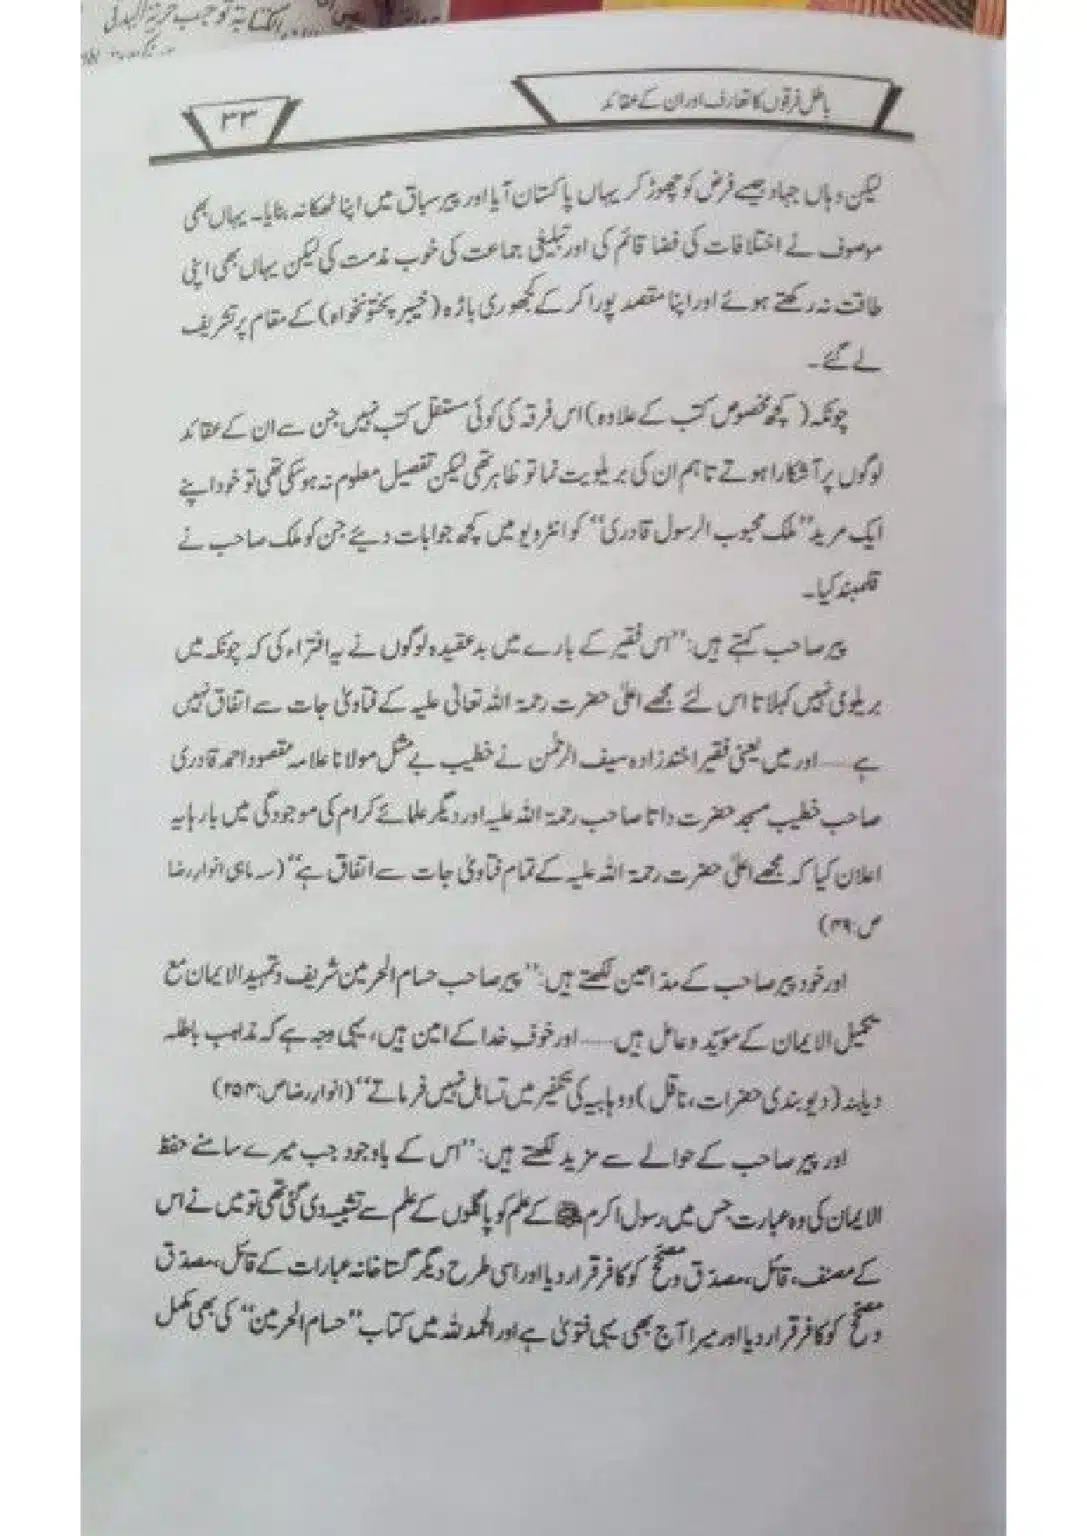 باطل فرقوں کا تعارف اور ان کے عقائد
۳۳
لیکن وہاں جہاد جیسے فرض کو چھوڑ کر یہاں پاکستان آیا اور پیر سباق میں اپنا ٹھکانہ بنایا۔ یہاں بھی
موصوف نے اختلافات کی فضا قائم کی اور تبلیغی جماعت کی خوب مذمت کی لیکن یہاں بھی اپنی
طاقت نہ رکھتے ہوئے اور اپنا مقصد پورا کر کے کجھوری باڑہ (خیبر پختونخواہ) کے مقام پر تشریف
لے گئے۔
چونکہ (کچھ مخصوص کتب کے علاوہ) اس فرقہ کی کوئی مستقل کتب نہیں جن سے ان کے عقائد
لوگوں پر آشکارا ہوتے تاہم ان کی بریلویت نما تو ظاہر تھی لیکن تفصیل معلوم نہ ہو سکی تھی تو خود اپنے
ایک مرید ”ملک محبوب الرسول قادری“ کو انٹرویو میں کچھ جوابات دیئے جن کو ملک صاحب نے
قلمبند کیا۔
پیر صاحب کہتے ہیں: ”اس فقیر کے بارے میں بد عقیدہ لوگوں نے یہ افتراء کی کہ چونکہ میں
بریلوی نہیں کہلاتا اس لئے مجھے اعلیٰ حضرت رحمۃ اللہ تعالیٰ علیہ کے فتاویٰ جات سے اتفاق نہیں
ہے ..... اور میں یعنی فقیر اخندزادہ سیف الرحمٰن نے خطیب بے مثل مولانا علامہ مقصود احمد قادری
صاحب خطیب مسجد حضرت داتا صاحب رحمۃ اللہ علیہ اور دیگر علمائے کرام کی موجودگی میں بارہا یہ
اعلان کیا کہ مجھے اعلیٰ حضرت رحمۃ اللہ علیہ کے تمام فتاویٰ جات سے اتفاق ہے“ (سہ ماہی انوار رضا
ص:۳۹)
اور خود پیر صاحب کے مداحین لکھتے ہیں: ”پیر صاحب حسام الحرمین شریف و تمہید الایمان مع
تکمیل الایمان کے موید و عامل ہیں ..... اور خوف خدا کے امین ہیں، یہی وجہ ہے کہ مذاہب باطلہ
دیابنہ (دیوبندی حضرات، ناقل) و وہابیہ کی تکفیر میں تساہل نہیں فرماتے“ (انوار رضا ص:۲۵۴)
اور پیر صاحب کے حوالے سے مزید لکھتے ہیں: ”اس کے باوجود جب میرے سامنے حفظ
الایمان کی وہ عبارت جس میں رسول اکرم ﷺ کے علم کو پاگلوں کے علم سے تشبیہ دی گئی تھی تو میں نے اس
کے مصنف، قائل، مصدق و مصحح کو کافر قرار دیا اور اسی طرح دیگر گستاخانہ عبارات کے قائل، مصدق
و مصحح کو کافر قرار دیا اور میرا آج بھی یہی فتویٰ ہے اور الحمد للہ میں کتاب ”حسام الحرمین“ کی بھی مکمل